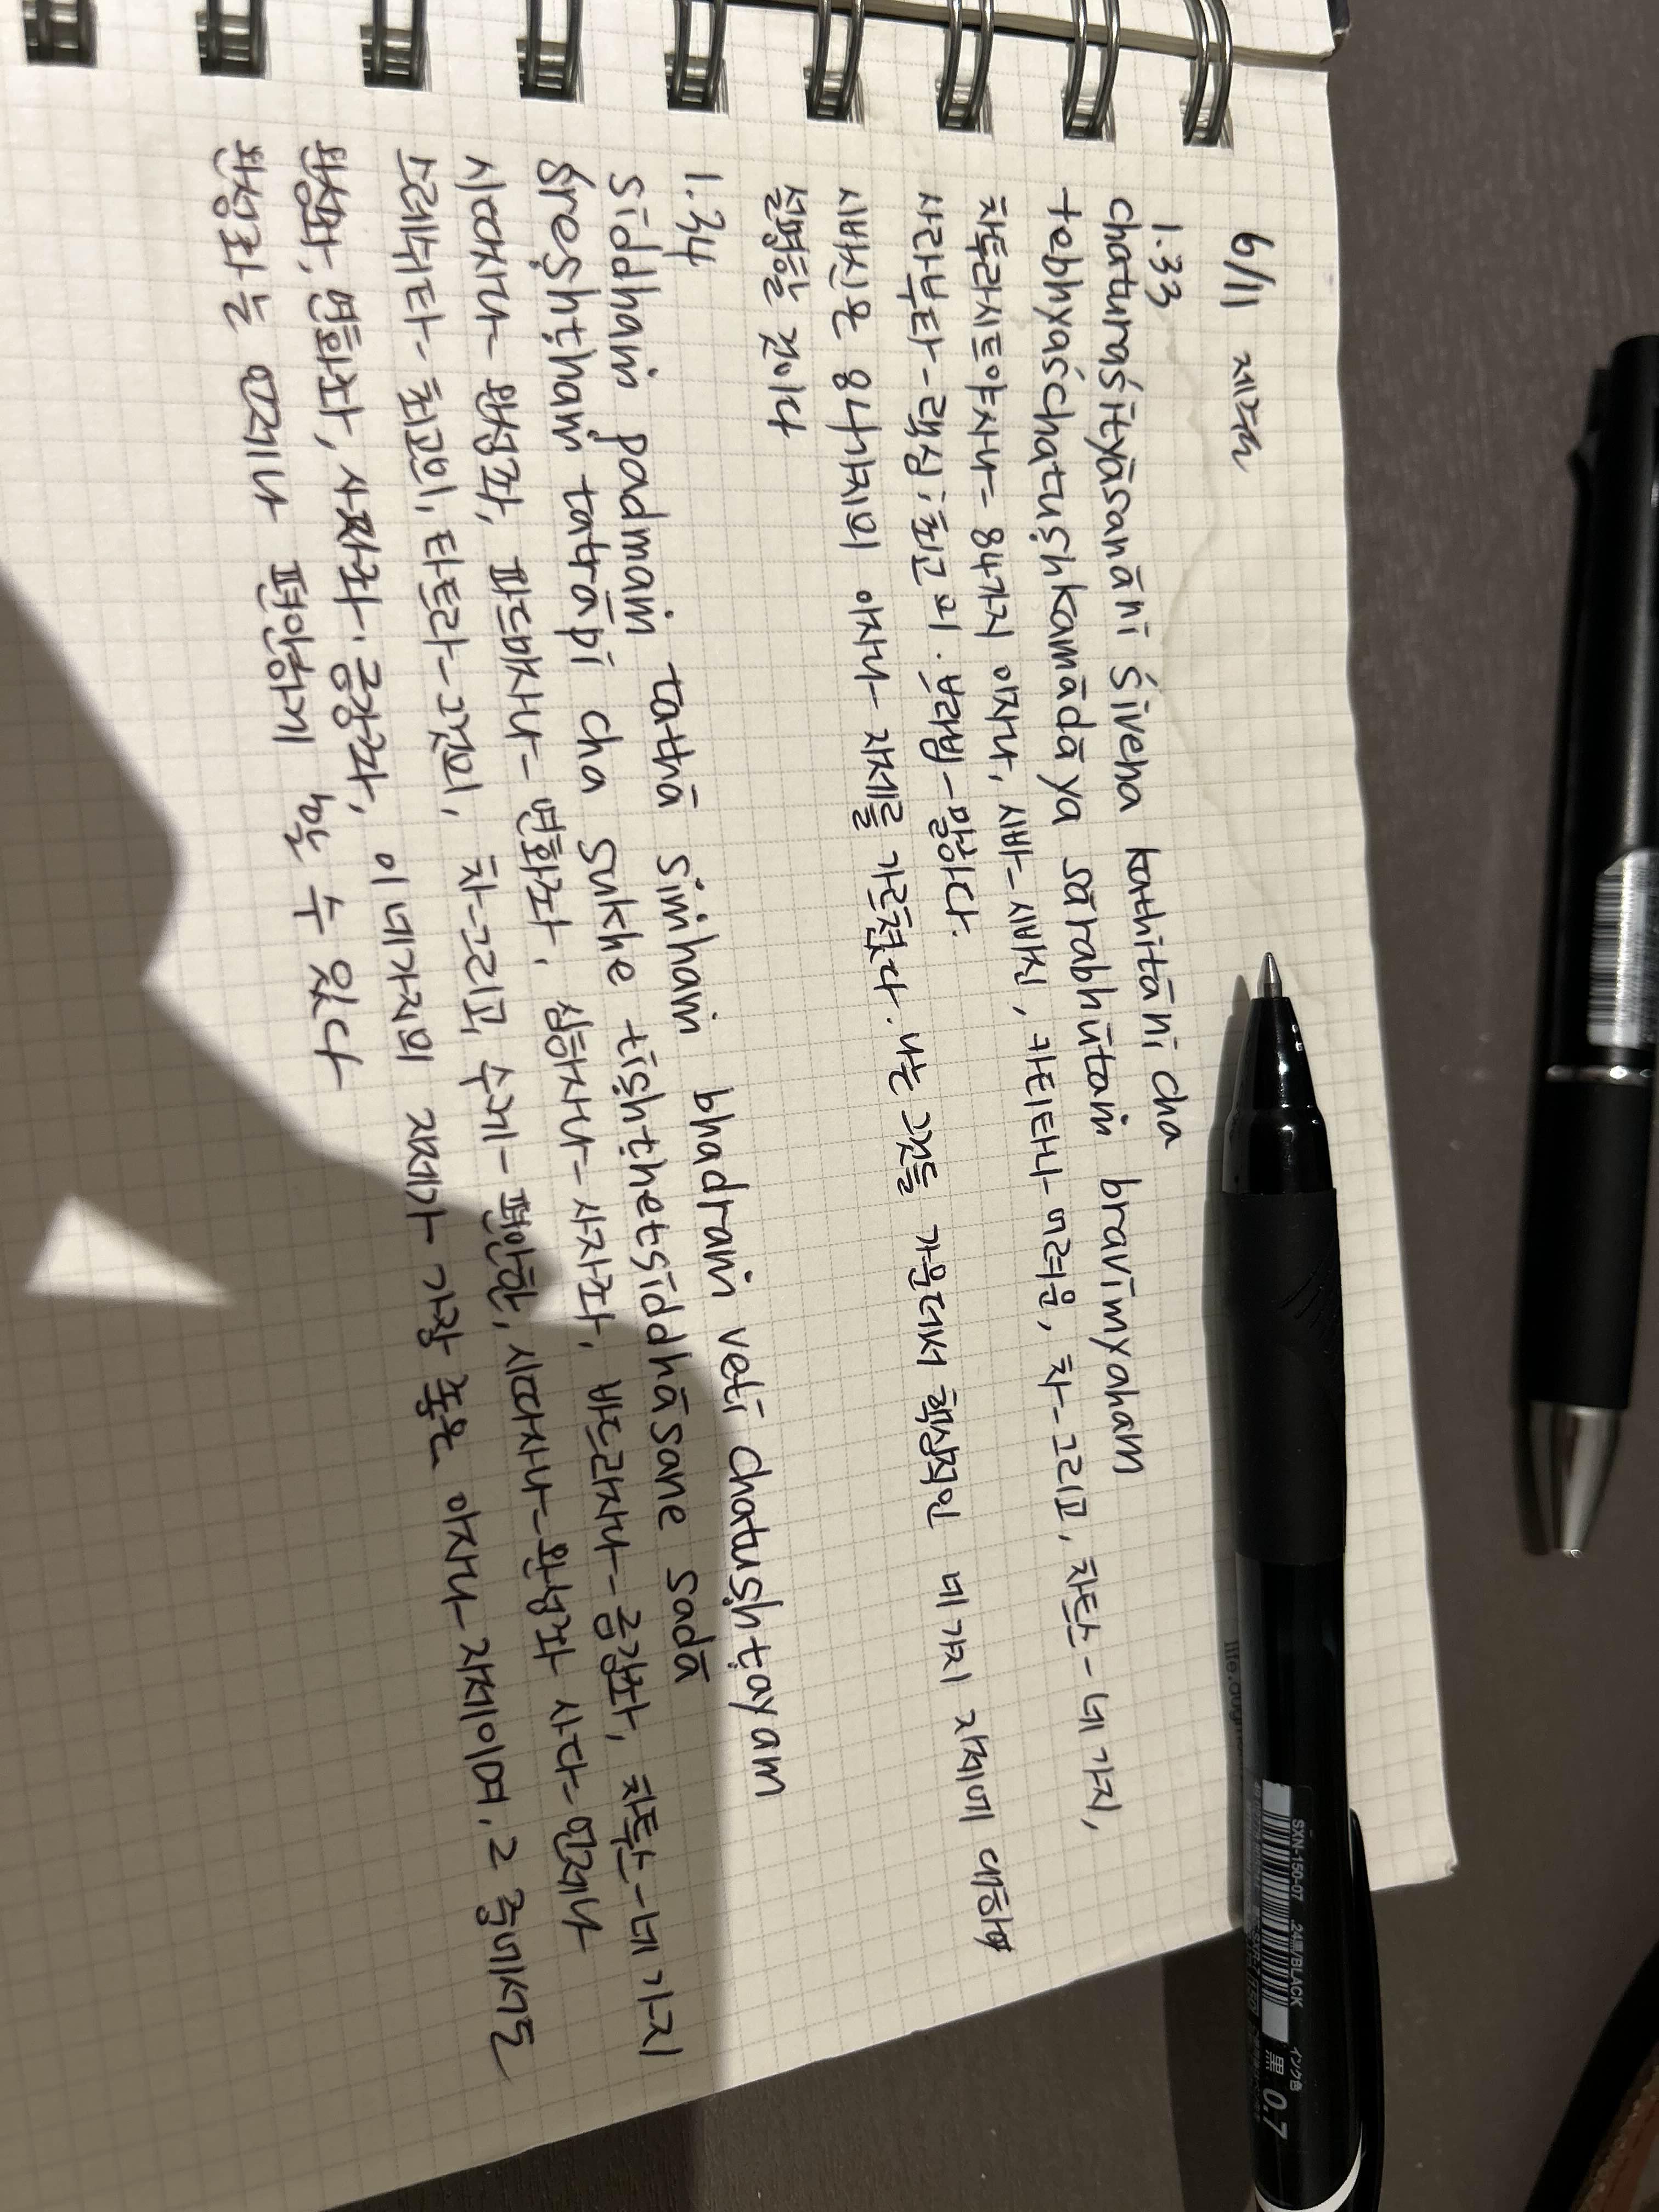 6/11 제주
1.33
chaturaśītyāsanāni śivena kathitāni cha
tebhyaśchatuṣhkamādāya sārabhūtaṁ bravīmyaham
차투라시트야사나 - 84가지 아사나, 시바 - 시바신, 카티타니 - 가르침, 차 - 그리고, 차탄스 - 네 가지,
사라부타 - 핵심; 최고의. 브라밈 - 말하다.
시바신은 84가지의 아사나 자세를 가르쳤다. 나는 그것들 가운데서 핵심적인 네 가지 자세에 대하여
설명할 것이다
1.34
siddhaṁ padmaṁ tathā siṁhaṁ bhadraṁ veti chatuṣhṭayam
śreṣhṭhaṁ tatrāpi cha sukhe tiṣhṭhetsiddhāsane sadā
시따사나 - 완성좌, 파드마사나 - 연화좌, 심하사나 - 사자좌, 바드라사나 - 금강좌, 차투스 - 네 가지
스레쉬타 - 최고의, 타트라 - 그것의, 차 - 그리고, 수케 - 편안한, 시따사나 - 완성좌 사다 - 언제나
완성좌, 연화좌, 사자좌, 금강좌, 이 네가지의 자세가 가장 좋은 아사나 자세이며, 그 중에서도
완성좌는 언제나 편안하게 할 수 있다
SXN-150-07 24黒/BLACK インク色 黒 0.7